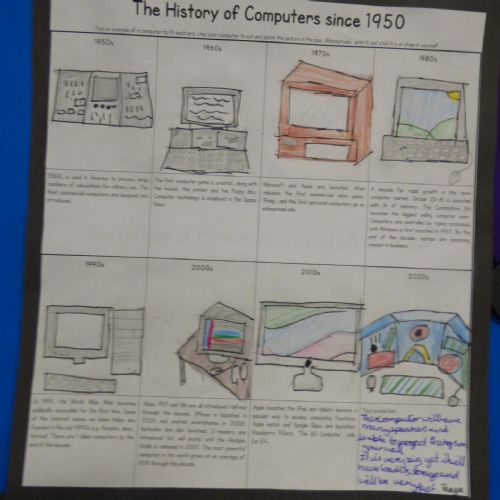 The History of Computers since 1950
Find an example of a computer to fit each era. Use your computer to cut and paste the picture in the box. Alternatively, print it and stick it in or draw it yourself.
1950s
1960s
1970s
1980s
ENIAC is used in America to process large
numbers of calculations for military use. The
first commercial computers are designed and
introduced.
The first computer game is created, along with
the mouse, the printer and the floppy disc.
Computer technology is employed in the Space
Race.
Microsoft and Apple are launched. Atari
releases the first commercial video game
'Pong', and the first personal computers go on
widespread sale.
A decade for rapid growth in the home
computer market. Sinclair ZX-81 is launched
with 1k of memory. The Commodore 64
becomes the biggest selling computer ever.
Computers are controlled by typing commands
until Windows is first launched in 1983. By the
end of the decade, laptops are becoming
popular in business.
1990s
2000s
2010s
2020s
In 1991, the World Wide Web becomes
publically accessible for the first time. Some
of the internet names we know today are
founded in the mid-1990s e.g. Amazon and
Hotmail. There are 1 billion computers by the
end of the decade.
Xbox, PS2 and Wii are all introduced halfway
through the decade. iPhone is launched in
2007 and android smartphones in 2008.
Netbooks are also launched. E-readers are
introduced but sell poorly until the Amazon
Kindle is released in 2007. The most powerful
computer in the world grows at an average of
90% through this decade.
Apple launches the iPad and tablets become a
popular way to access computing functions.
Apple watch and Google Glass are launched.
Raspberry Pi Zero, 'The $5 Computer' sells
for £4.
Your prediction!
This computor will have
many speakers and
be able to project things on
your wall.
It is very big yet it will
have loads of storage and
will be very fast.